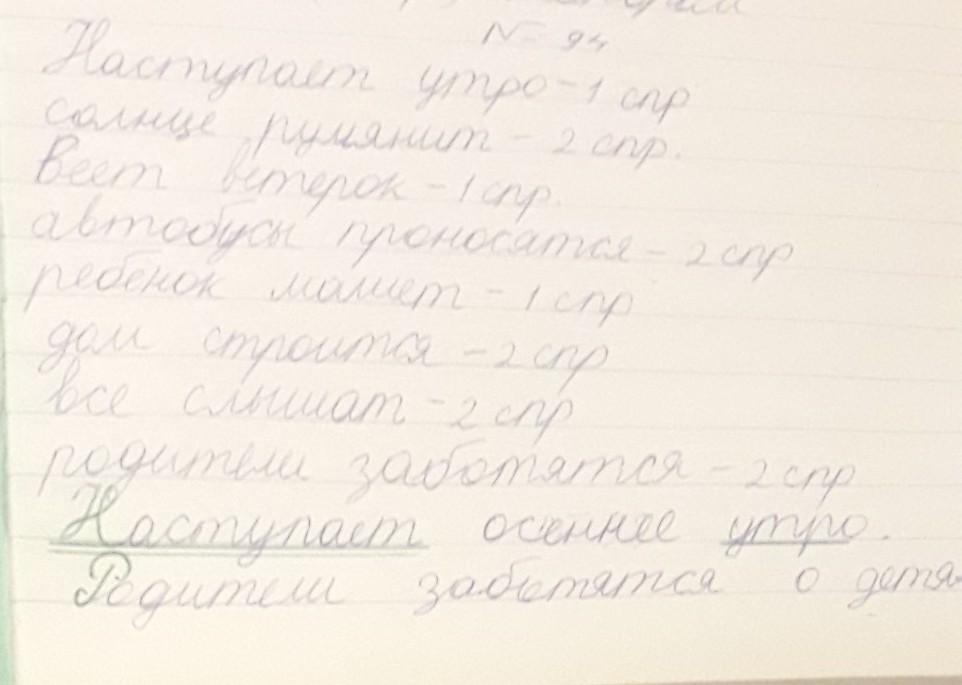 № 94
Наступает утро - 1 спр
солнце румянит - 2 спр.
Веет ветерок - 1 спр.
автобусы проносятся - 2 спр
ребенок машет - 1 спр
дом строится - 2 спр
все слышат - 2 спр
родители заботятся - 2 спр
Наступает осеннее утро.
Родители заботятся о детя